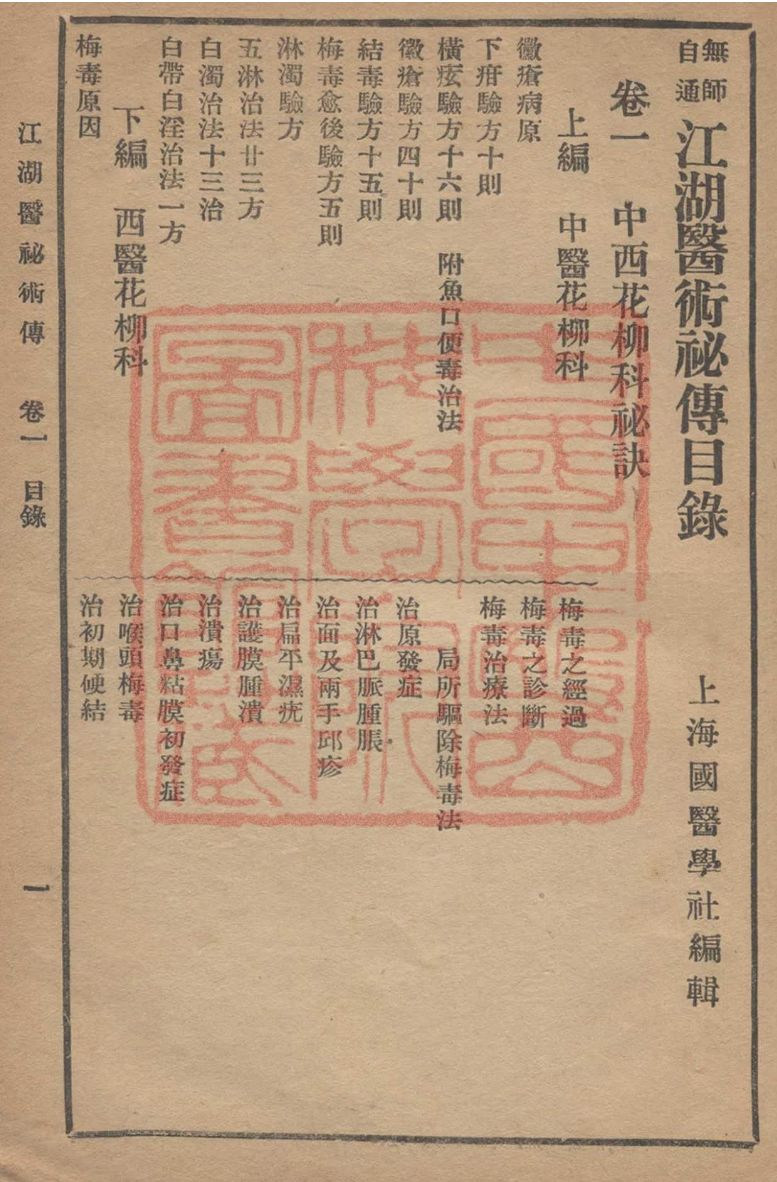 無師自通 江湖醫術祕傳目錄
上海國醫學社編輯
卷一 中西花柳科祕訣
上編 中醫花柳科
黴瘡病原
下疳驗方十則
橫痃驗方十六則 附魚口便毒治法
黴瘡驗方四十則
結毒驗方十五則
梅毒愈後驗方五則
淋濁驗方
五淋治法廿三方
白濁治法十三治
白帶白淫治法一方
下編 西醫花柳科
梅毒原因
梅毒之經過
梅毒之診斷
梅毒治療法
局所驅除梅毒法
治原發症
治淋巴脈腫脹
治面及兩手邱疹
治扁平濕疣
治護膜腫潰
治潰瘍
治口鼻粘膜初發症
治喉頭梅毒
治初期硬結
江湖醫祕術傳 卷一 目錄
一
中國中醫
科學院
圖書館藏